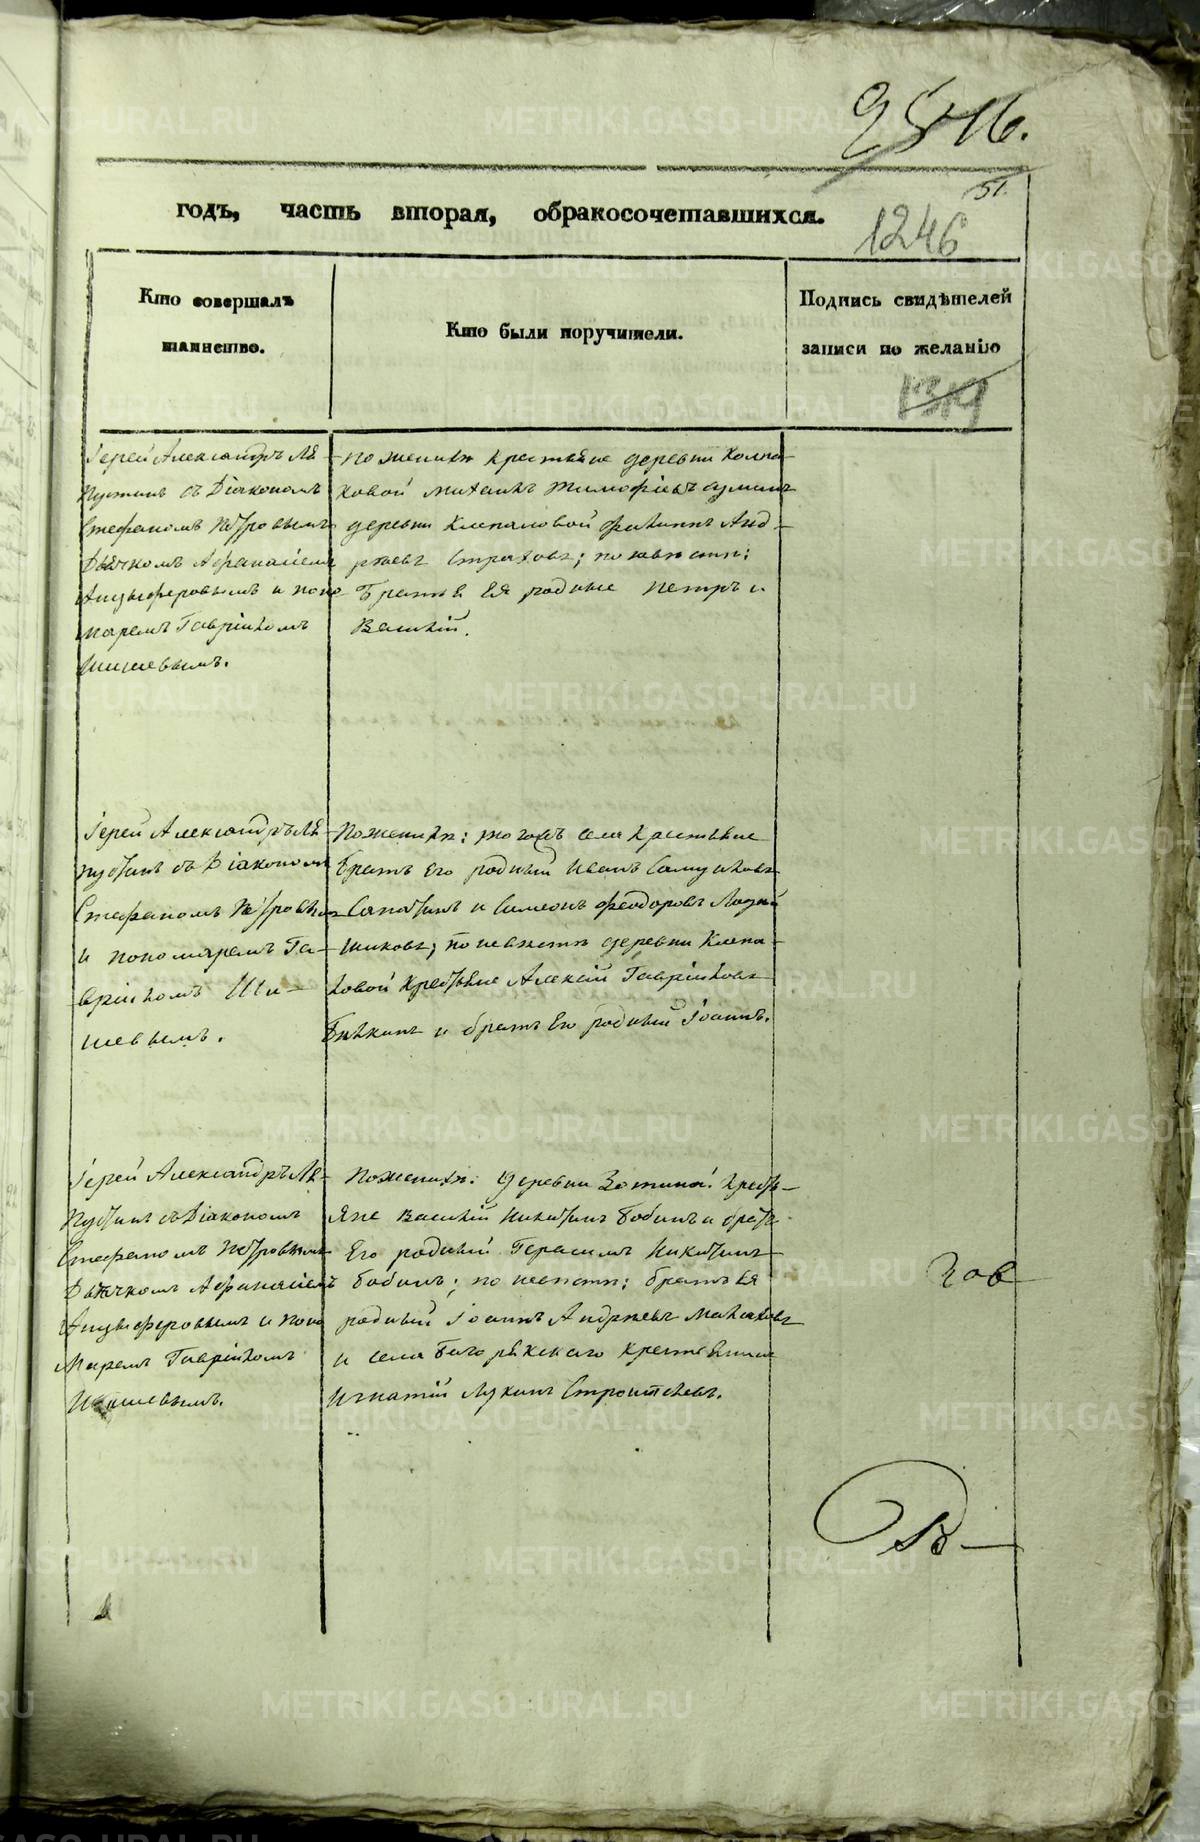 2546.
51.
годъ, часть вторая, обракосочетавшихся.
1246
Кто совершалъ
таинство.
Кто были поручители.
Подпись свидѣтелей
записи по желанію
1319
Іерей Александръ Ля-
пустинъ съ Діакономъ
Стефаномъ Петровымъ
Дьячкомъ Афанасіемъ
Анцыферовымъ и поно
маремъ Гавріиломъ
Шишевымъ.
по женихѣ крестьяне деревни
ковой Михаилъ Тимофѣевъ
деревни Клепаловой Филиппъ Анд-
рѣевъ Страховъ; по невѣстѣ:
Братья Ея родные Петръ и
Василій.
Іерей Александръ Ля-
пустинъ съ Діакономъ
Стефаномъ Петровымъ
и пономаремъ Га-
вріиломъ Ши-
шевымъ.
По женихѣ: того села крестьяне
братъ Его родный Иванъ Самуиловъ
и Симеонъ Феодоровъ
по невѣстѣ деревни Клепа-
ловой крестьяне Алексій Гавріиловъ
и братъ Его родный Іоаннъ.
Іерей Александръ Ля-
пустинъ съ Діакономъ
Стефаномъ Петровымъ
Дьячкомъ Афанасіемъ
Анцыферовымъ и поно
маремъ Гавріиломъ
Шишевымъ.
По женихѣ: деревни Зотиной кресть-
яне Василій Никитинъ Бобинъ и братъ
Его родный Герасимъ Никитинъ
Бобинъ; по невѣстѣ: братъ Ея
родный Іоаннъ Андрѣевъ
и села крестьянинъ
Игнатій Лукинъ Строителевъ.
METRIKI.GASO-URAL.RU